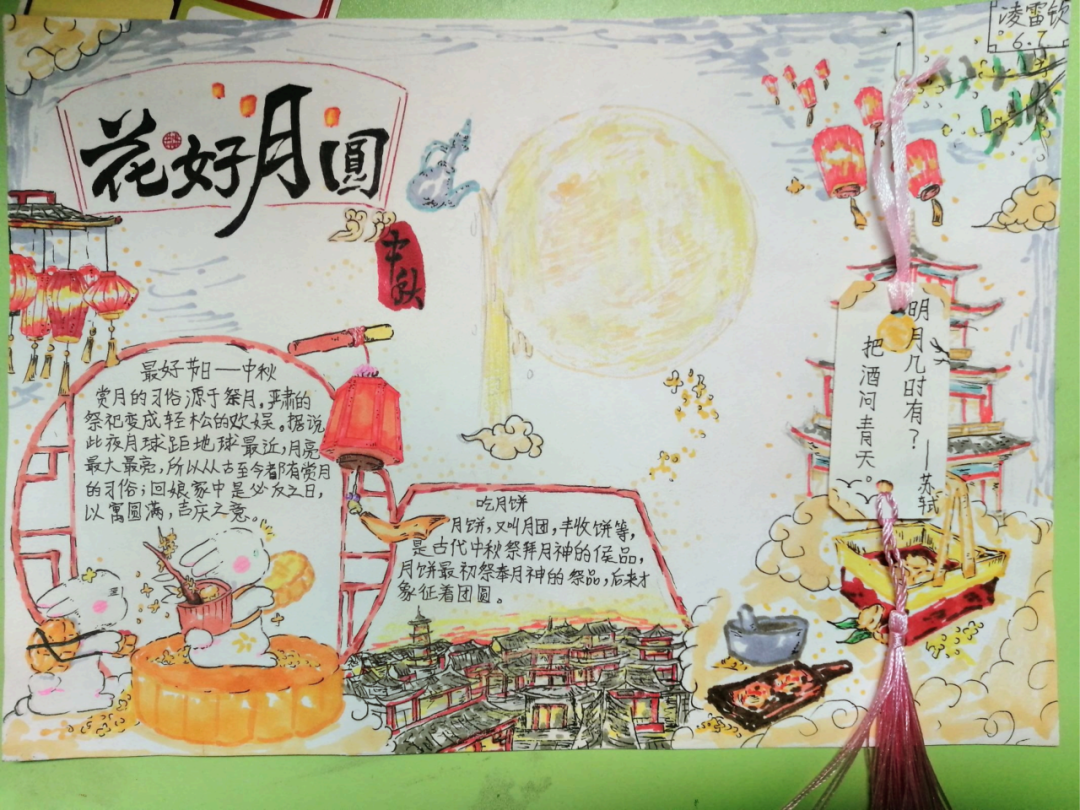 花好月圆
中秋
凌雷钦
明月几时有？
把酒问青天。
——苏轼
最好节日——中秋
赏月的习俗源于祭月，严肃的
祭祀变成轻松的欢娱。据说
此夜月球距地球最近，月亮
最大最亮，所以从古至今都有赏月
的习俗；回娘家中是必反之日，
以寓圆满，吉庆之意。
吃月饼
月饼，又叫月团，丰收饼等，
是古代中秋祭拜月神的侯品，
月饼最初祭奉月神的祭品，后来才
象征着团圆。